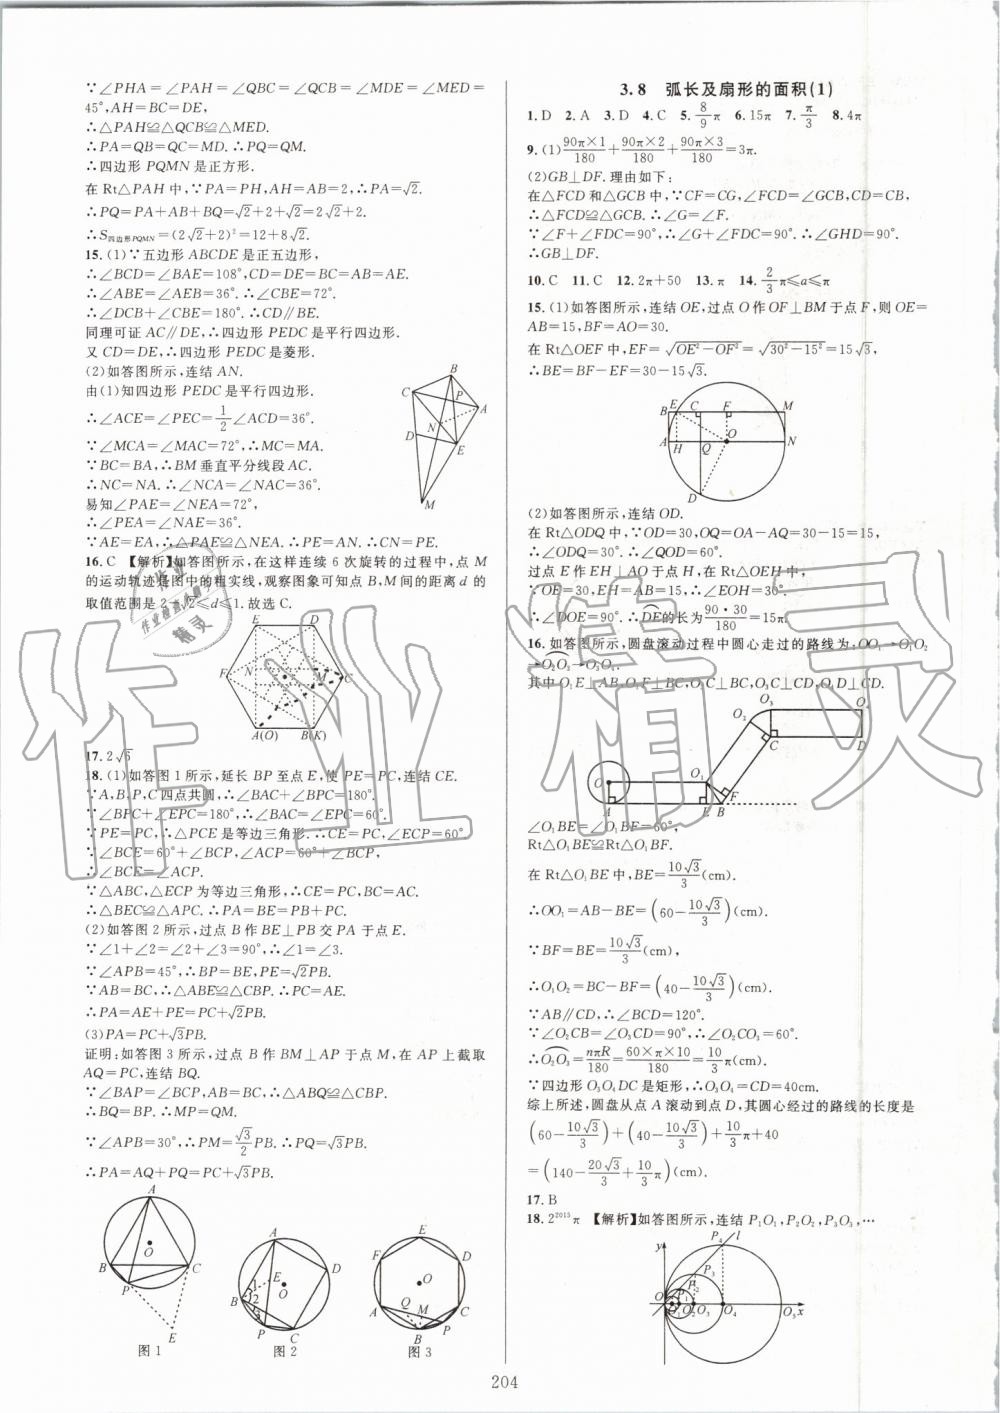 ∵∠PHA=∠PAH=∠QBC=∠QCB=∠MDE=∠MED=
45°,AH=BC=DE,
∴△PAH≌△QCB≌△MED.
∴PA=QB=QC=MD.∴PQ=QM.
∴四边形PQMN是正方形.
在Rt△PAH中,∵PA=PH,AH=AB=2,∴PA=√2.
∴PQ=PA+AB+BQ=√2+2+√2=2√2+2.
∴S四边形PQMN=(2√2+2)²=12+8√2.
15.(1)∵五边形ABCDE是正五边形,
∴∠BCD=∠BAE=108°,CD=DE=BC=AB=AE.
∴∠ABE=∠AEB=36°.∴∠CBE=72°.
∴∠DCB+∠CBE=180°.∴CD∥BE.
同理可证AC∥DE,∴四边形PEDC是平行四边形.
又CD=DE,∴四边形PEDC是菱形.
(2)如答图所示,连结AN.
由(1)知四边形PEDC是平行四边形.
∴∠ACE=∠PEC=1/2∠ACD=36°.
∵∠MCA=∠MAC=72°,∴MC=MA.
∵BC=BA,∴BM垂直平分线段AC.
∴NC=NA.∴∠NAC=∠NCA=36°.
易知∠PAE=∠NEA=72°,
∴∠PEA=∠NAE=36°.
∵AE=EA,∴△PAE≌△NEA.∴PE=AN.∴CN=PE.
B
C
P
A
N
D
E
M
16.C 【解析】如答图所示,在这样连续6次旋转的过程中,点M
的运动轨迹是图中的粗实线,观察图象可知点B,M间的距离d的
取值范围是2-√2≤d≤1.故选C.
E D
F N M C
A(O) B(K)
17.2√6
18.(1)如答图1所示,延长BP至点E,使PE=PC,连结CE.
∵A,B,P,C四点共圆,∴∠BAC+∠BPC=180°.
∵∠BPC+∠EPC=180°,∴∠BAC=∠EPC=60°.
∵PE=PC,∴△PCE是等边三角形.∴CE=PC,∠ECP=60°.
∵∠BCE=60°+∠BCP,∠ACP=60°+∠BCP,
∴∠BCE=∠ACP.
∵△ABC,△ECP为等边三角形,∴CE=PC,BC=AC.
∴△BEC≌△APC.∴PA=BE=PB+PC.
(2)如答图2所示,过点B作BE⊥PB交PA于点E.
∵∠1+∠2=∠2+∠3=90°,∴∠1=∠3.
∵∠APB=45°,∴BP=BE,PE=√2PB.
∵AB=BC,∴△ABE≌△CBP.∴PC=AE.
∴PA=AE+PE=PC+√2PB.
(3)PA=PC+√3PB.
证明:如答图3所示,过点B作BM⊥AP于点M,在AP上截取
AQ=PC,连结BQ.
∵∠BAP=∠BCP,AB=BC,∴△ABQ≌△CBP.
∴BQ=BP.∴MP=QM.
∵∠APB=30°,∴PM=√3/2PB.∴PQ=√3PB.
∴PA=AQ+PQ=PC+√3PB.
A
O
B C
P
E
图1
A
E D
1
2 O
B 3
P C
图2
E
F D
O
A Q M C
B P
图3
3.8 弧长及扇形的面积(1)
1.D 2.A 3.D 4.C 5.8/9π 6.15π 7.π/3 8.4π
9.(1)90π×1/180+90π×2/180+90π×3/180=3π.
(2)GB⊥DF.理由如下:
在△FCD和△GCB中,∵CF=CG,∠FCD=∠GCB,CD=CB,
∴△FCD≌△GCB.∴∠G=∠F.
∵∠F+∠FDC=90°,∴∠G+∠FDC=90°.∴∠GHD=90°.
∴GB⊥DF.
10.C 11.C 12.2π+50 13.π 14.2/3π≤a≤π
15.(1)如答图所示,连结OE,过点O作OF⊥BM于点F,则OE=
AB=15,BF=AO=30.
在Rt△OEF中,EF=√OE²-OF²=√30²-15²=15√3,
∴BE=BF-EF=30-15√3.
B E C F M
A H Q O N
D
(2)如答图所示,连结OD.
在Rt△ODQ中,∵OD=30,OQ=OA-AQ=30-15=15,
∴∠ODQ=30°.∴∠QOD=60°.
过点E作EH⊥OA于点H.在Rt△OEH中,
∵OE=30,EH=AB=15,∴∠EOA=30°.
∴∠DOE=90°.∴DE的长为90·30/180π=15π.
16.如答图所示,圆盘滚动过程中圆心走过的路线为:OO₁→O₁O₂
→O₂O₃→O₃O₄.
其中O₁E⊥AB,O₁F⊥BC,O₂C⊥BC,O₃C⊥CD,O₄D⊥CD.
O₃
O₂
C D
O O₁
F
A E B
∠O₁BE=∠O₁BF=60°,
Rt△O₁BE≌Rt△O₁BF.
在Rt△O₁BE中,BE=10√3/3(cm).
∴OO₁=AB-BE=(60-10√3/3)(cm).
∵BF=BE=10√3/3(cm).
∴O₁O₂=BC-BF=(40-10√3/3)(cm).
∵AB∥CD,∴∠BCD=120°.
∵∠O₂CB=∠O₃CD=90°,∴∠O₂CO₃=60°.
∴O₂O₃=nπR/180=60×π×10/180=10/3π(cm).
∵四边形O₃O₄DC是矩形,∴O₃O₄=CD=40cm.
综上所述,圆盘从点A滚动到点D,其圆心经过的路线的长度是
(60-10√3/3)+(40-10√3/3)+10/3π+40
=(140-20√3/3+10/3π)(cm).
17.B
18.2²⁰¹⁵π 【解析】如答图所示,连结P₁O₁,P₂O₂,P₃O₃,…
y P₄ l
P₃
P₂
P₁
O O₂ O₃ O₄ O₅ x
204
作业精灵